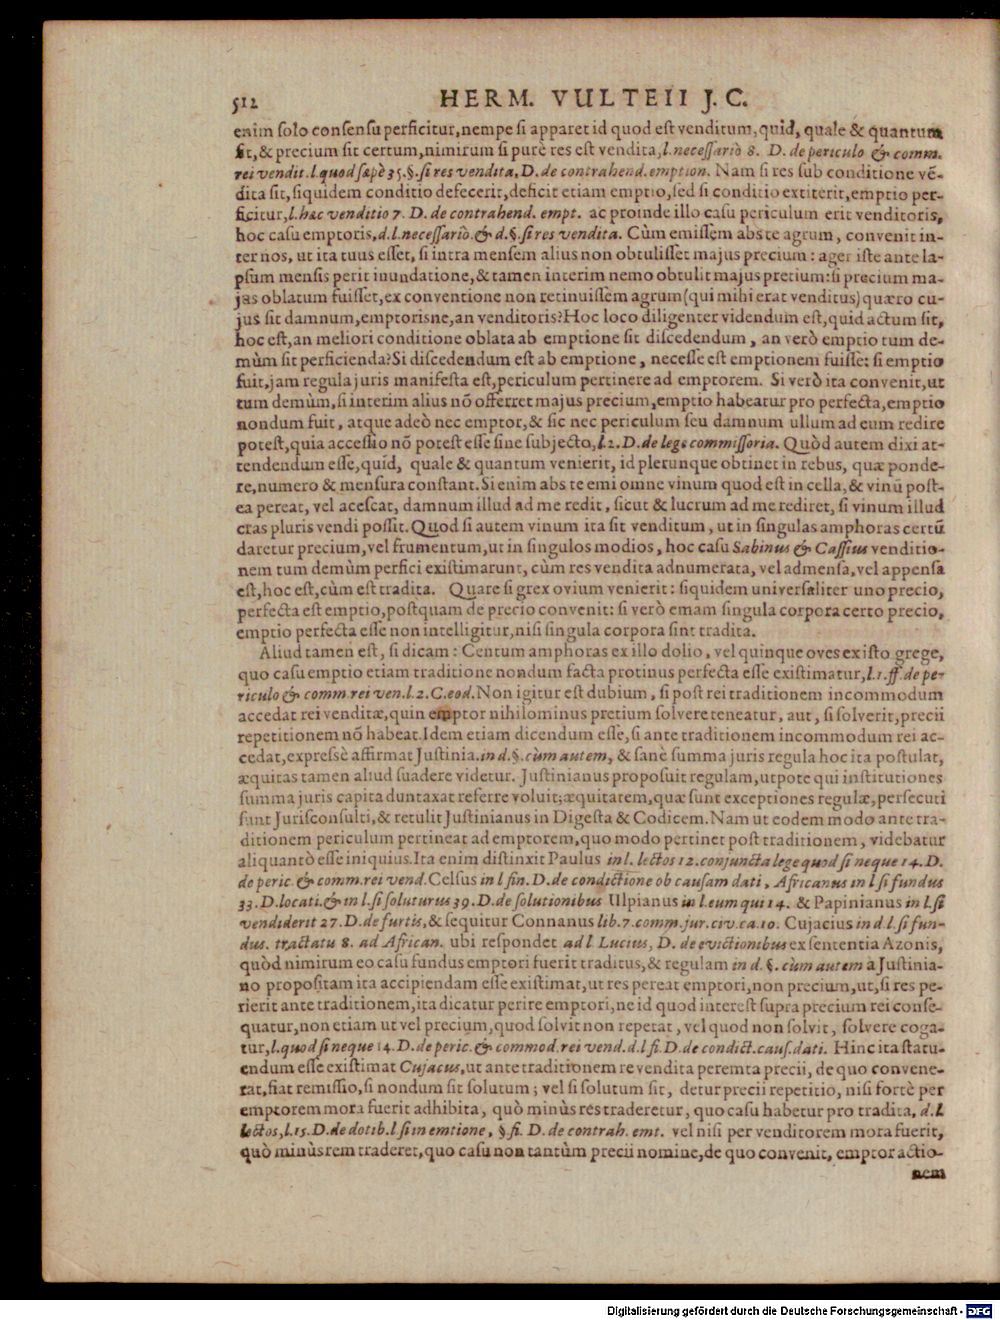 512 HERM. VULTEII J. C.
enim ſolo conſenſu perficitur,nempe ſi apparet id quod eſt venditum,quid, quale & quantum
ſit,& precium ſit certum,nimirum ſi purè res eſt vendita,l.neceſſariò 8. D. de periculo & comm.
rei vendit.l.quod ſæpè 35.§.ſi res vendita,D.de contrahend.emption. Nam ſi res ſub conditione vē-
dita ſit,ſiquidem conditio defecerit,deficit etiam emptio,ſed ſi conditio extiterit,emptio per-
ficitur,l.hæc venditio 7. D. de contrahend. empt. ac proinde illo caſu periculum erit venditoris,
hoc caſu emptoris,d.l.neceſſariò.& d.§.ſi res vendita. Cùm emiſſem abs te agrum, convenit in-
ter nos, ut ita tuus eſſet, ſi intra menſem alius non obtuliſſet majus precium : ager iſte ante la-
pſum menſis perit inundatione,& tamen interim nemo obtulit majus pretium:ſi precium ma-
jus oblatum fuiſſet,ex conventione non retinuiſſem agrum(qui mihi erat venditus)quæro cu-
jus ſit damnum,emptorisne,an venditoris?Hoc loco diligenter videndum eſt,quid actum ſit,
hoc eſt,an meliori conditione oblata ab emptione ſit diſcedendum, an verò emptio tum de-
mùm ſit perficienda?Si diſcedendum eſt ab emptione, neceſſe eſt emptionem fuiſſe: ſi emptio
fuit,jam regula juris manifeſta eſt,periculum pertinere ad emptorem. Si verò ita convenit,ut
tum demùm,ſi interim alius nō offerret majus precium,emptio habeatur pro perfecta,emptio
nondum fuit, atque adeò nec emptor,& ſic nec periculum ſeu damnum ullum ad eum redire
poteſt,quia acceſſio nō poteſt eſſe ſine ſubjecto,l.2.D.de lege commiſſoria. Quòd autem dixi at-
tendendum eſſe,quid, quale & quantum venierit, id plerunque obtinet in rebus, quæ ponde-
re,numero & menſura conſtant.Si enim abs te emi omne vinum quod eſt in cella,& vinū poſt-
ea pereat, vel aceſcat, damnum illud ad me redit, ſicut & lucrum ad me rediret, ſi vinum illud
cras pluris vendi poſſit.Quod ſi autem vinum ita ſit venditum, ut in ſingulas amphoras certū
daretur precium,vel frumentum,ut in ſingulos modios, hoc caſu Sabinus & Caſſius venditio-
nem tum demùm perfici exiſtimarunt, cùm res vendita adnumerata, vel admenſa,vel appenſa
eſt,hoc eſt,cùm eſt tradita. Quare ſi grex ovium venierit: ſiquidem univerſaliter uno precio,
perfecta eſt emptio,poſtquam de precio convenit: ſi verò emam ſingula corpora certo precio,
emptio perfecta eſſe non intelligitur,niſi ſingula corpora ſint tradita.
Aliud tamen eſt, ſi dicam: Centum amphoras ex illo dolio, vel quinque oves ex iſto grege,
quo caſu emptio etiam traditione nondum facta protinus perfecta eſſe exiſtimatur,l.1.ff.de pe-
riculo & comm.rei ven.l.2.C.eod.Non igitur eſt dubium, ſi poſt rei traditionem incommodum
accedat rei venditæ,quin emptor nihilominus pretium ſolvere teneatur, aut, ſi ſolverit,precii
repetitionem nō habeat.Idem etiam dicendum eſſe,ſi ante traditionem incommodum rei ac-
cedat,expreſsè affirmat Juſtinia.in d.§.cùm autem, & ſanè ſumma juris regula hoc ita poſtulat,
æquitas tamen aliud ſuadere videtur. Juſtinianus propoſuit regulam,utpote qui inſtitutiones
ſumma juris capita duntaxat referre voluit;æquitatem,quæ ſunt exceptiones regulæ,perſecuti
ſunt Juriſconſulti,& retulit Juſtinianus in Digeſta & Codicem.Nam ut eodem modo ante tra-
ditionem periculum pertineat ad emptorem,quo modo pertinet poſt traditionem, videbatur
aliquantò eſſe iniquius.Ita enim diſtinxit Paulus in l. lectos 12.conjuncta lege quod ſi neque 14. D.
de peric. & comm.rei vend.Celſus in l fin. D.de condictione ob cauſam dati, Africanus in l ſi fundus
33. D.locati.& in l.ſi ſoluturus 39.D.de ſolutionibus Ulpianus in l.eum qui 14. & Papinianus in l.ſi
vendiderit 27. D.de furtis,& ſequitur Connanus lib.7.comm.jur.civ.ca.10. Cujacius in d.l.ſi fun-
dus. tractatu 8. ad African. ubi reſpondet ad l Lucius, D. de evictionibus ex ſententia Azonis,
quòd nimirum eo caſu fundus emptori fuerit traditus,& regulam in d. §. cùm autem à Juſtinia-
no propoſitam ita accipiendam eſſe exiſtimat,ut res pereat emptori,non precium,ut,ſi res pe-
rierit ante traditionem,ita dicatur perire emptori,ne id quod intereſt ſupra precium rei conſe-
quatur,non etiam ut vel precium,quod ſolvit non repetat, vel quod non ſolvit, ſolvere coga-
tur,l.quod ſi neque 14. D.de peric. & commod.rei vend.d.l fi.D.de condict.cauſ.dati. Hinc ita ſtatu-
endum eſſe exiſtimat Cujacus,ut ante traditionem re vendita perempta precii, de quo convene-
rat,fiat remiſſio,ſi nondum ſit ſolutum; vel ſi ſolutum ſit, detur precii repetitio, niſi fortè per
emptorem mora fuerit adhibita, quò minùs res traderetur, quo caſu habetur pro tradita, d.l.
lectos,l.15.D.de dotib.l ſi in emtione, § fi. D. de contrah. emt. vel niſi per venditorem mora fuerit,
quò minùs rem traderet,quo caſu non tantùm precii nomine,de quo convenit, emptor actio-
nem
Digitalisierung gefördert durch die Deutsche Forschungsgemeinschaft - DFG